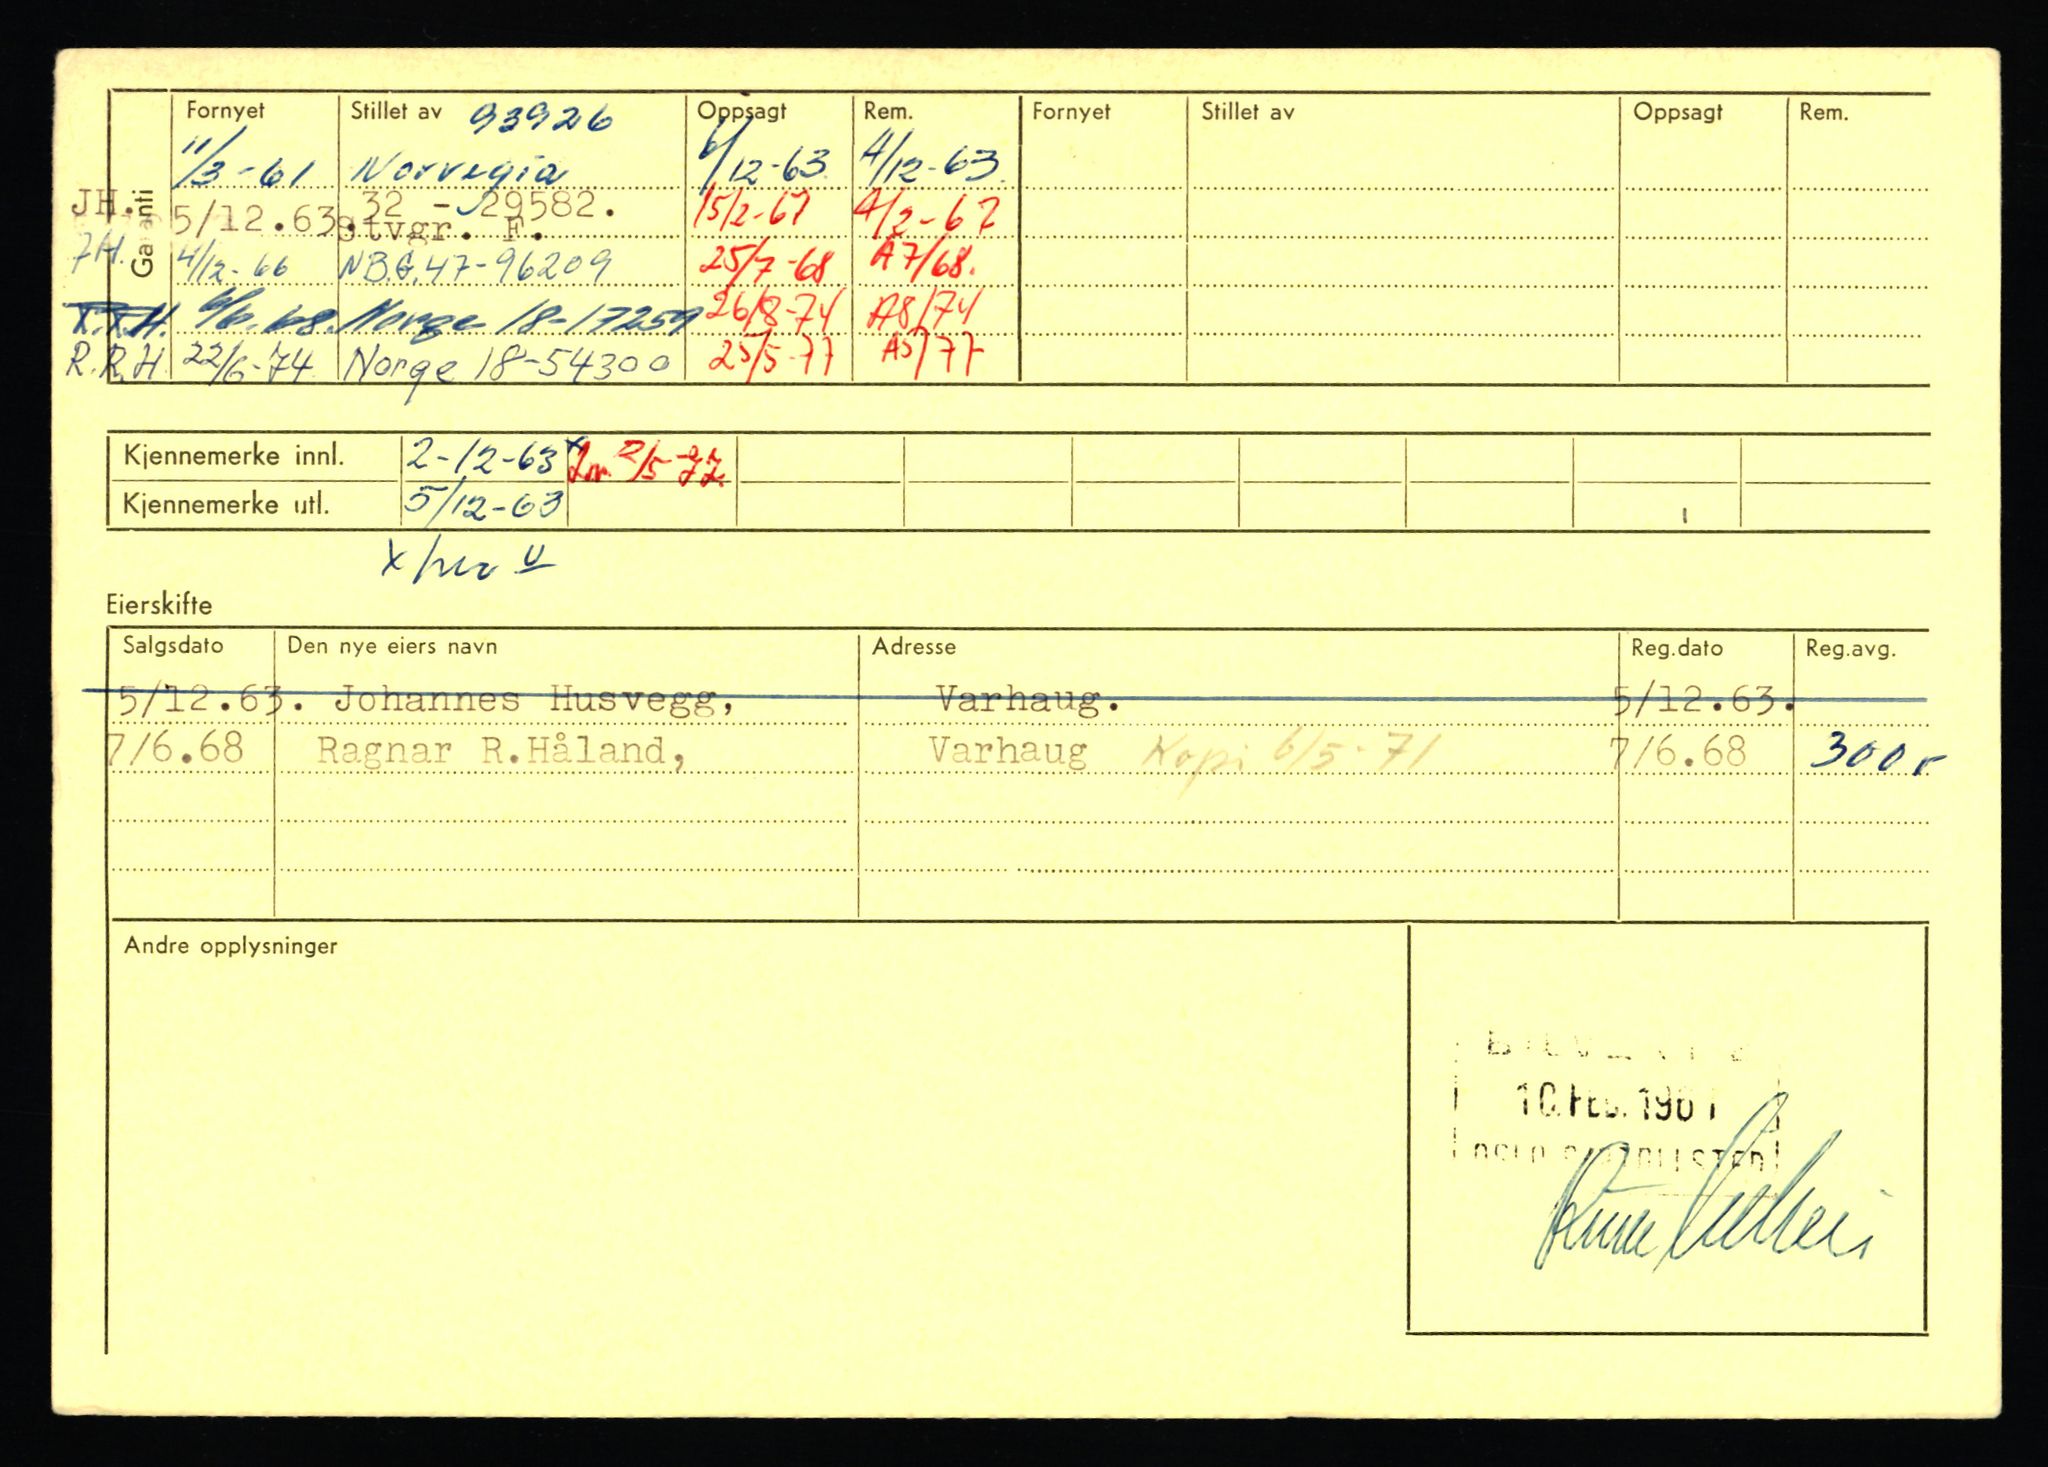 Fornyet Stillet av 93926 Oppsagt Rem. Fornyet Stillet av Oppsagt Rem.
Garanti
11/3-61 Norvegia 6/12-63 A/12-63.
JH. 5/12.63. 32 - 29582. Stvgr. F. 15/2-67 A/2-67
JH. 4/12-66 NB.G.47-96209 25/7-68 A7/68.
6/6.68. Norge 18-17259 26/8-74 A8/74
R.R.H. 22/6-74 Norge 18-54300 25/5-77 A5/77
Kjennemerke innl. 2-12-63 x 2/5-77.
Kjennemerke utl. 5/12-63
x
Eierskifte
Salgsdato Den nye eiers navn Adresse Reg.dato Reg.avg.
5/12.63. Johannes Husvegg, Varhaug. 5/12.63.
7/6.68 Ragnar R.Håland, Varhaug Kopi 6/5-71 7/6.68 300,-
Andre opplysninger
10. FEB. 1961